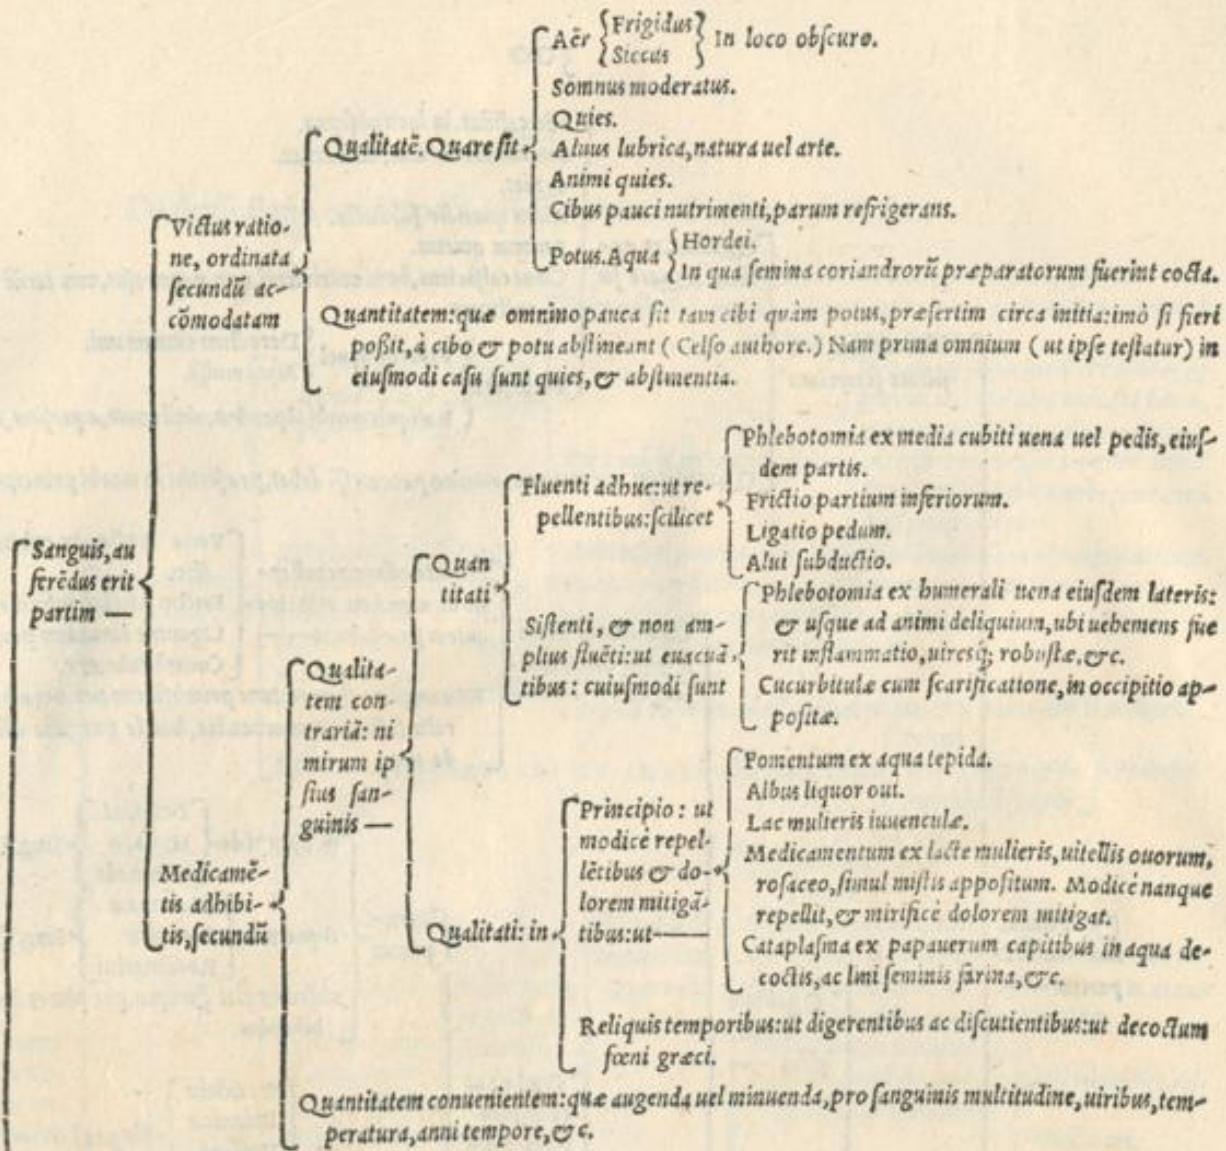 Aër {Frigidus} In loco obſcuro.
{Siccus}
Somnus moderatus.
Quies.
Qualitatē. Quare ſit
Aluus lubrica, natura uel arte.
Animi quies.
Cibus pauci nutrimenti, parum refrigerans.
Potus. Aqua {Hordei.
{In qua ſemina coriandrorū præparatorum fuerint cocta.
Victus ratio-
ne, ordinata
ſecundū ac-
cōmodatam
Quantitatem: quæ omnino pauca ſit tam cibi quàm potus, præſertim circa initia: imò ſi fieri
poßit, à cibo & potu abſtineant ( Celſo authore.) Nam prima omnium ( ut ipſe teſtatur) in
eiuſmodi caſu ſunt quies, & abſtinentia.
Sanguis, au
ferēdus erit
partim —
Medicamē-
tis adhibi-
tis, ſecundū
Qualita-
tem con-
trariā: ni
mirum ip
ſius ſan-
guinis —
Quan
titati
Fluenti adhuc: ut re-
pellentibus: ſcilicet
Phlebotomia ex media cubiti uena uel pedis, eiuſ-
dem partis.
Frictio partium inferiorum.
Ligatio pedum.
Alui ſubductio.
Siſtenti, & non am-
plius fluēti: ut euacuā-
tibus: cuiuſmodi ſunt
Phlebotomia ex humerali uena eiuſdem lateris:
& uſque ad animi deliquium, ubi uehemens fue
rit inflammatio, uiresq; robuſtæ, &c.
Cucurbitulæ cum ſcarificatione, in occipitio ap-
poſitæ.
Qualitati: in
Principio: ut
modicè repel-
lētibus & do-
lorem mitigā-
tibus: ut —
Fomentum ex aqua tepida.
Albus liquor oui.
Lac mulieris iuuenculæ.
Medicamentum ex lacte mulieris, uitellis ouorum,
roſaceo, ſimul miſtis appoſitum. Modicè nanque
repellit, & mirificè dolorem mitigat.
Cataplaſma ex papauerum capitibus in aqua de-
coctis, ac lini ſeminis farina, &c.
Reliquis temporibus: ut digerentibus ac diſcutientibus: ut decoctum
fœni græci.
Quantitatem conuenientem: quæ augenda uel minuenda, pro ſanguinis multitudine, uiribus, tem-
peratura, anni tempore, &c.